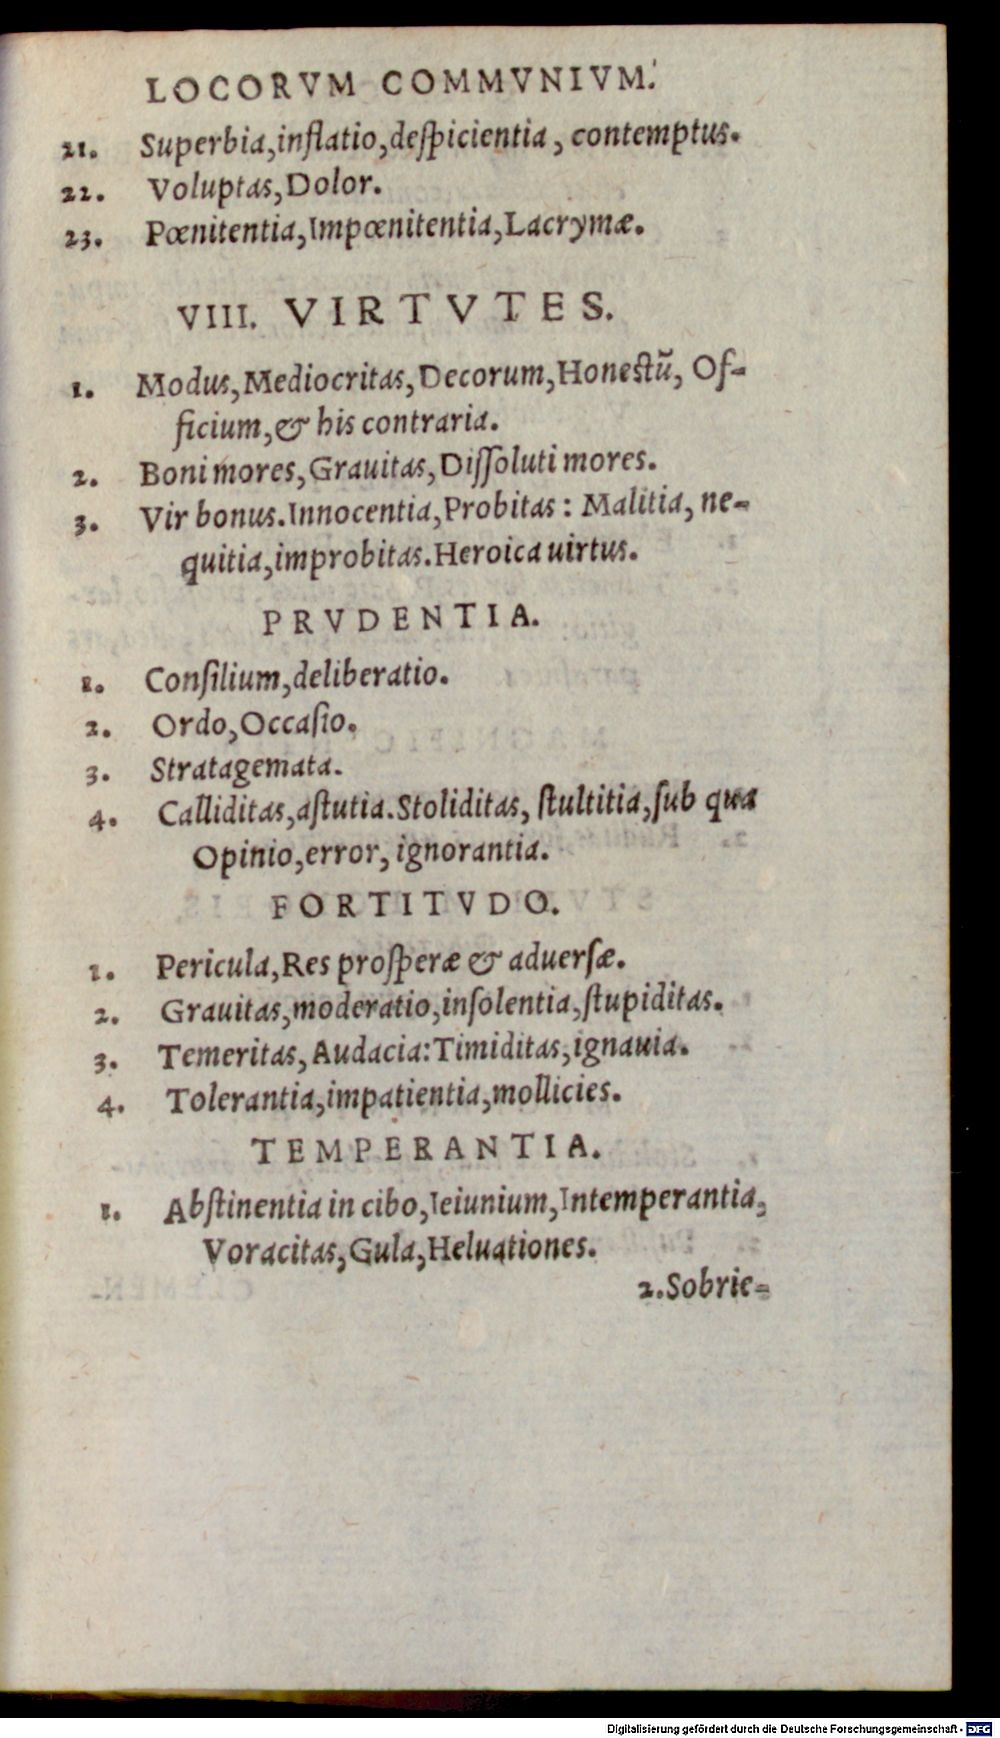 LOCORVM COMMVNIVM.
21. Superbia,inflatio,deſpicientia, contemptus.
22. Voluptas,Dolor.
23. Pœnitentia,Impœnitentia,Lacrymæ.
VIII. VIRTVTES.
1. Modus,Mediocritas,Decorum,Honeſtũ, Of-
ficium,& his contraria.
2. Boni mores,Grauitas,Diſſoluti mores.
3. Vir bonus.Innocentia,Probitas: Malitia, ne-
quitia,improbitas.Heroica uirtus.
PRVDENTIA.
1. Conſilium,deliberatio.
2. Ordo,Occaſio.
3. Stratagemata.
4. Calliditas,aſtutia.Stoliditas, ſtultitia,ſub qua
Opinio,error, ignorantia.
FORTITVDO.
1. Pericula,Res proſperæ & aduerſæ.
2. Grauitas,moderatio,inſolentia,ſtupiditas.
3. Temeritas, Audacia:Timiditas,ignauia.
4. Tolerantia,impatientia,mollicies.
TEMPERANTIA.
1. Abſtinentia in cibo,Ieiunium,Intemperantia,
Voracitas,Gula,Heluationes.
2.Sobrie-
Digitalisierung gefördert durch die Deutsche Forschungsgemeinschaft - DFG